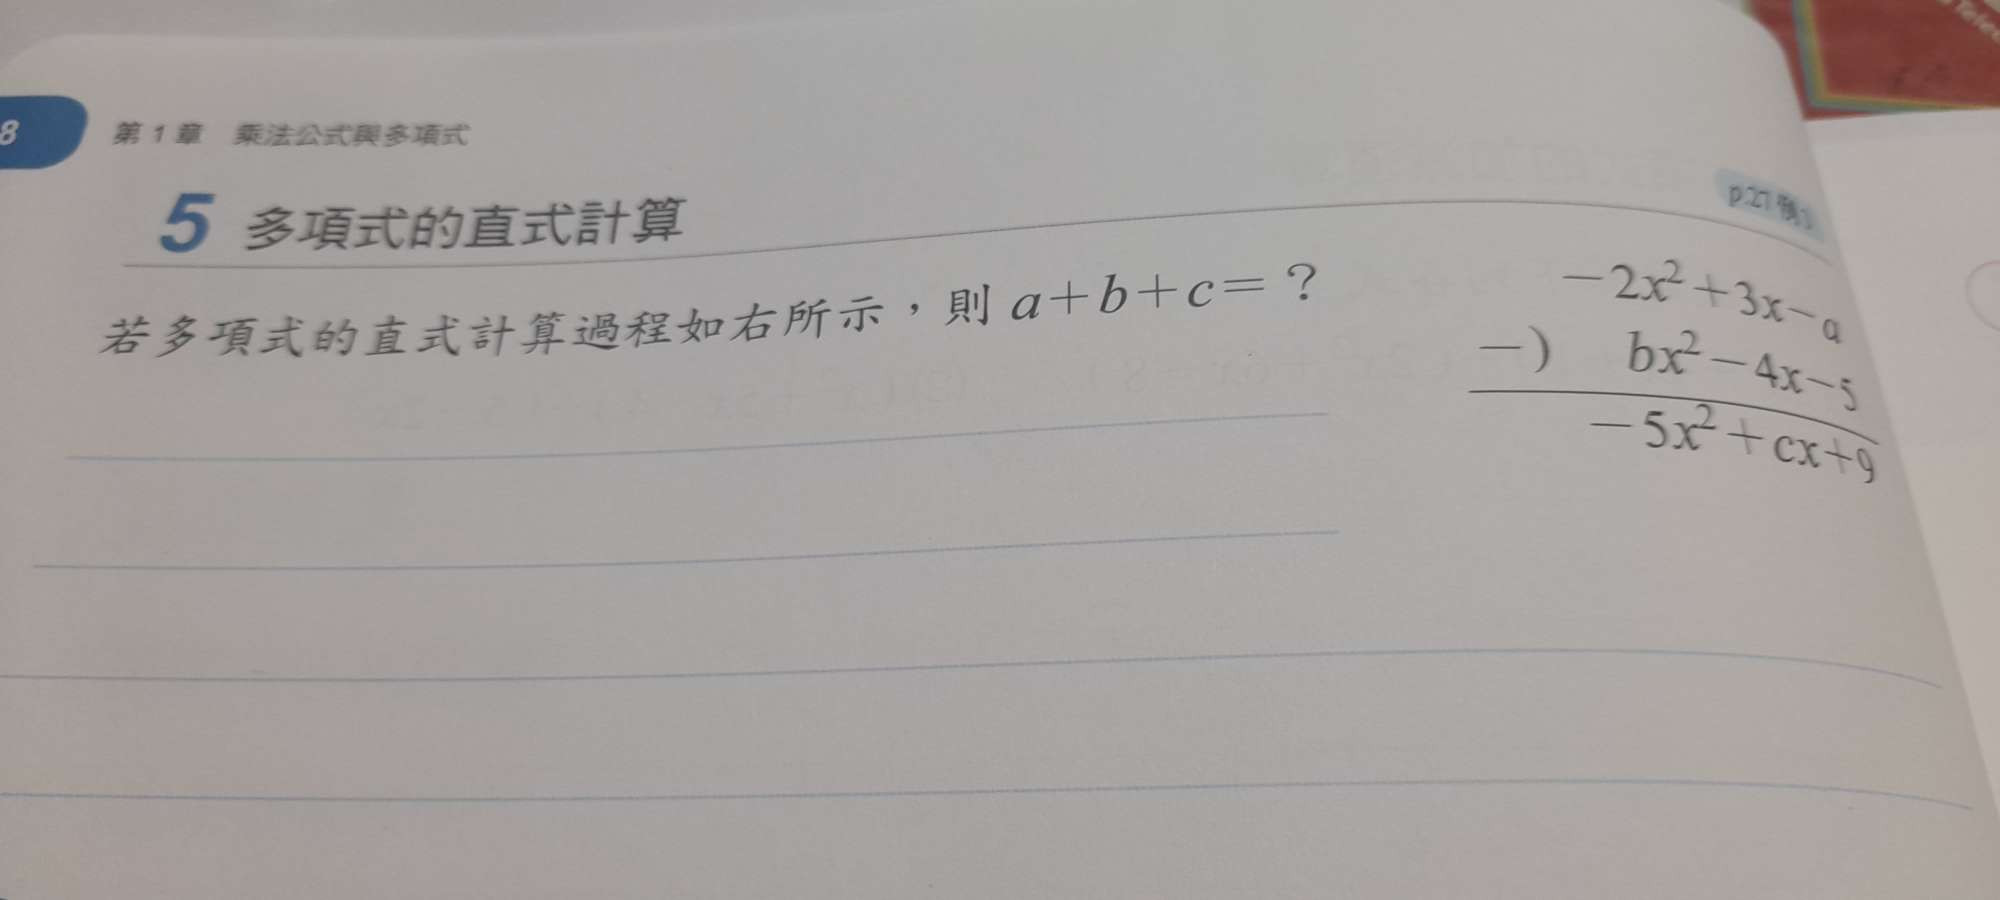 8
第 1 章 乘法公式與多項式
5 多項式的直式計算
p.27 例3
若多項式的直式計算過程如右所示，則 a＋b＋c＝？
－2x²＋3x－a
－） bx²－4x－5
－5x²＋cx＋9